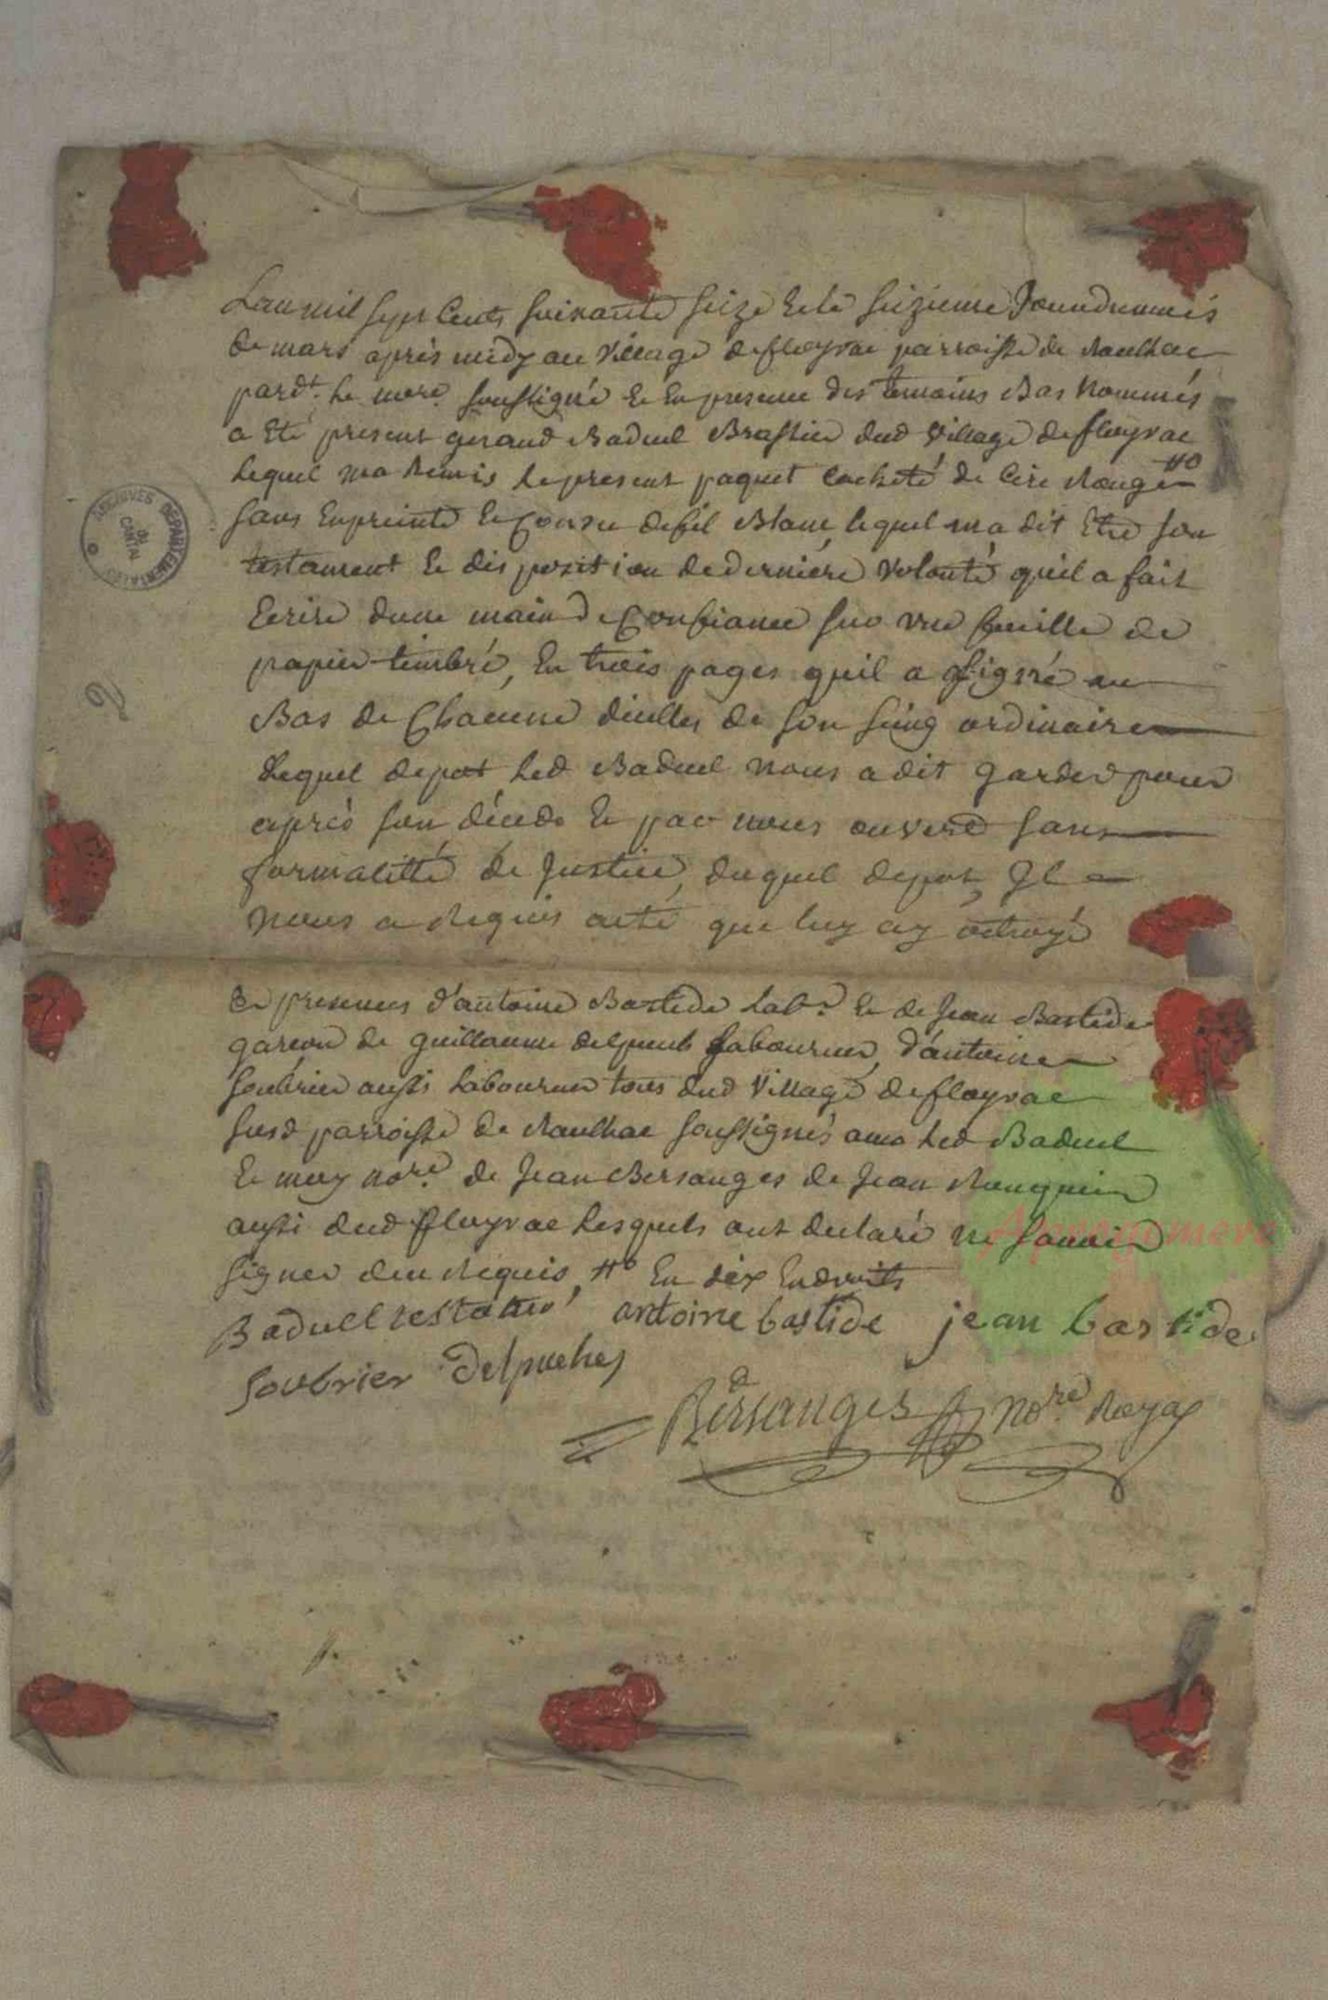 Lan mil sept Cents soixante seize Et le seizieme Jour du mois
de mars apres midy au village de fleyrac parroisse de Raulhac
pard.t le nore. soussigné Et En presence des temoins Bas Nommés
a Eté present geraud Baduel Brassier dud village de fleyrac
Lequel ma Remis le present paquet Cacheté de Cire Rouge #o
sans Enpreinte Et Cousu de fil Blanc, lequel ma dit Etre son
testament Et disposition de derniere volonté quil a fait
Ecrire dune main de Confiance sur une feuille de
papier timbré, En trois pages quil a signé au
Bas de Chacune dicelles de son seing ordinaire
Lequel depot led Baduel nous a dit garder pour
aprés son décéds Et par nous ouvert sans
formalitté de Justice, duquel depot, Il
nous a Requis acte que luy ay octroyé
En presences d'antoine Bastide lab.r Et de Jean Bastide
garcon de guillaume delpuech Laboureur, d'antoine
soubrier aussi Laboureur tous dud village de fleyrac
susd parroisse de Raulhac soussignés avec led Baduel
Et moy nore. de Jean Bersanges de Jean
aussi dud fleyrac lesquels ont declaré ne savoir
signer de ce Requis, #o En dix Endroits
Baduel testateur antoine bastide jean bastide
soubrier Delpuches
Bersanges nore. Royal
ARCHIVES DEPARTEMENTALES
DU
CANTAL
2
Apanagemere